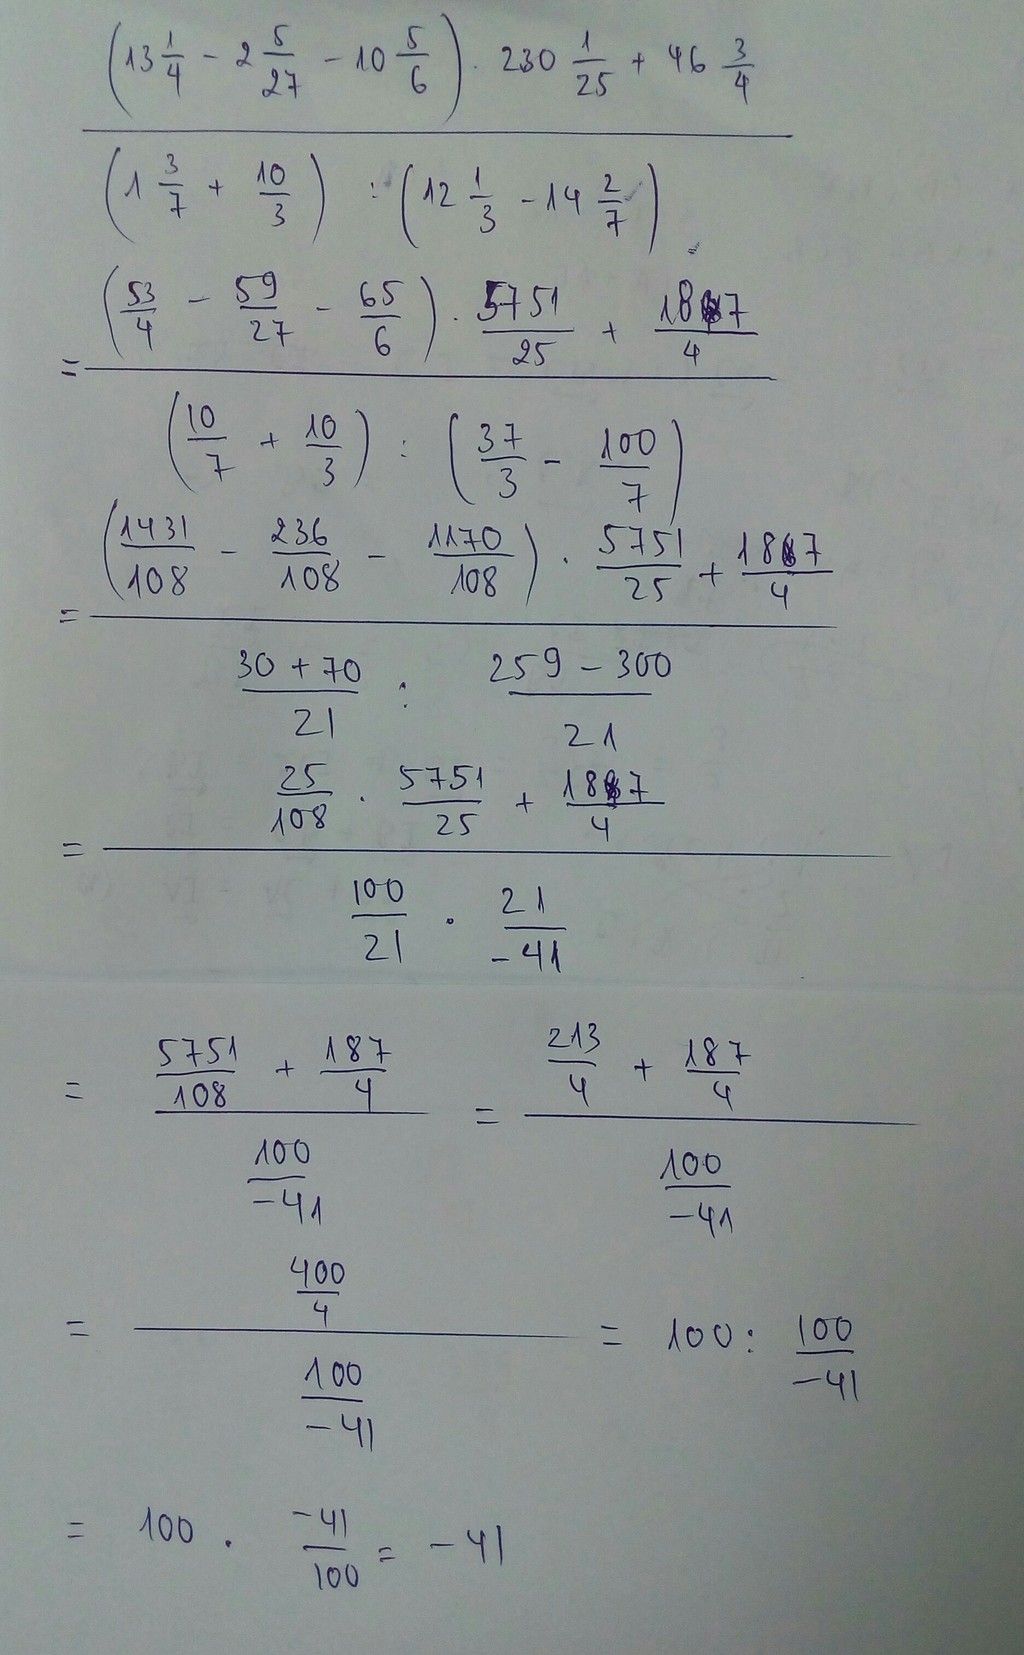 (13 1/4 - 2 5/27 - 10 5/6) · 230 1/25 + 46 3/4
(1 3/7 + 10/3) : (12 1/3 - 14 2/7)
= (53/4 - 59/27 - 65/6) · 5751/25 + 187/4
(10/7 + 10/3) : (37/3 - 100/7)
= (1431/108 - 236/108 - 1170/108) · 5751/25 + 187/4
30 + 70/21 : 259 - 300/21
= 25/108 · 5751/25 + 187/4
100/21 · 21/-41
= 5751/108 + 187/4 = 213/4 + 187/4
100/-41 100/-41
= 400/4 = 100 : 100/-41
100/-41
= 100 · -41/100 = -41